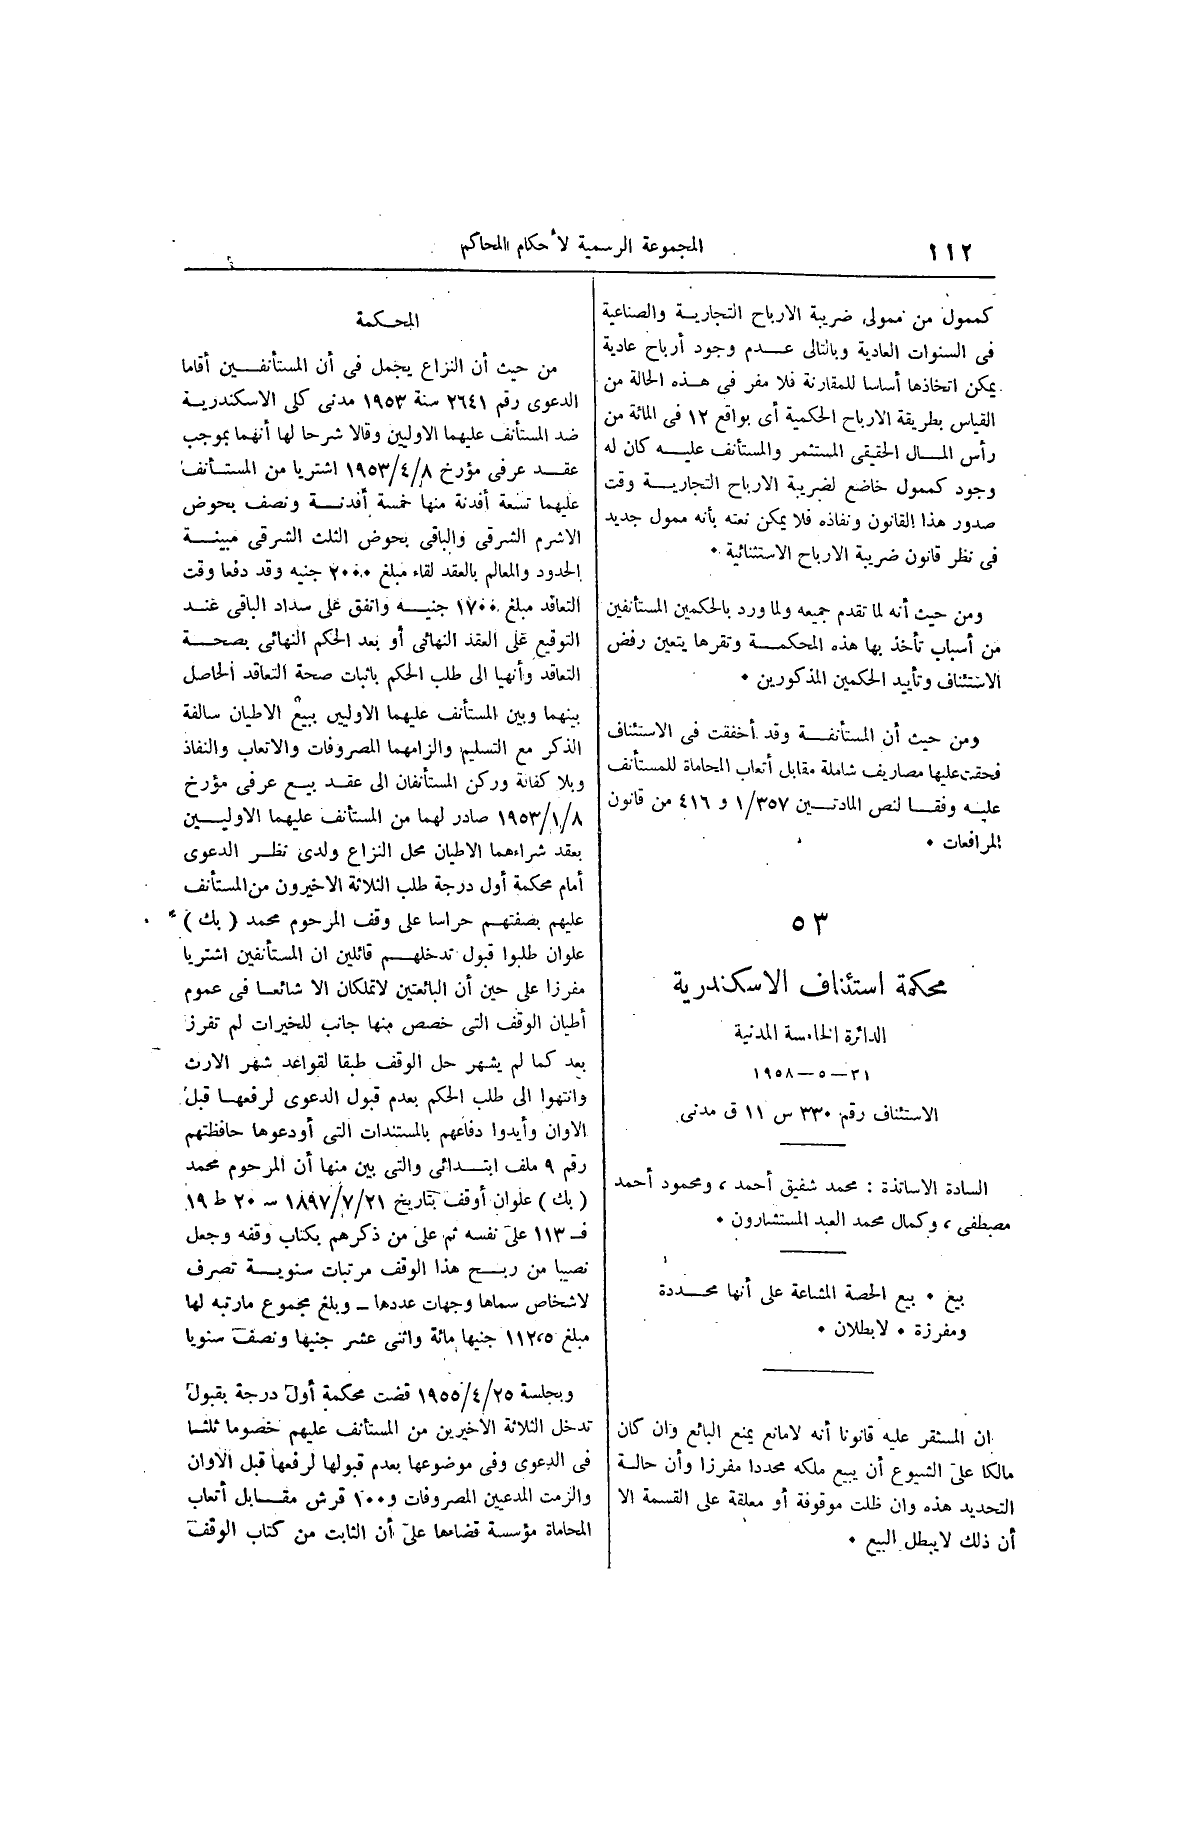 ١١٢
المجموعة الرسمية لأحكام المحاكم
كممول من ممولى ضريبة الارباح التجاريـة والصناعية
فى السنوات العادية وبالتالى عـدم وجود أرباح عادية
يمكن اتخاذها أساسا للمقارنة فلا مفر فى هـذه الحالة من
القياس بطريقة الارباح الحكمية أى بواقع ١٢ فى المائة من
رأس المـال الحقيقى المستثمر والمستأنف عليـه كان له
وجود كممول خاضع لضريبة الارباح التجاريـة وقت
صدور هذا القانون ونفاذه فلا يمكن نعته بأنه ممول جديد
فى نظر قانون ضريبة الارباح الاستثنائية ٠
ومن حيث أنه لما تقدم جميعه ولما ورد بالحكمين المستأنفين
من أسباب تأخذ بها هذه المحكمـة وتقرها يتعين رفض
الاستئناف وتأييد الحكمين المذكورين ٠
ومن حيث أن المستأنفـة وقد أخفقت فى الاستئناف
فحقت عليها مصاريف شاملة مقابل أتعاب المحاماة للمستأنف
عليـه وفقـا لنص المادتـين ١/٣٥٧ و ٤١٦ من قانون
المرافعات ٠
٥٣
محكمة استئناف الاسكندرية
الدائرة الخامسة المدنية
٣١ – ٥ – ١٩٥٨
الاستئناف رقم ٣٣٠ س ١١ ق مدنى
السادة الاساتذة : محمد شفيق أحمد ، ومحمود أحمد
مصطفى ، وكمال محمد العبد المستشارون ٠
بيع ٠ بيع الحصة المشاعة على أنها محـددة
ومفرزة ٠ لابطلان ٠
ان المستقر عليه قانونا أنه لامانع يمنع البائع وان كان
مالكا على الشيوع أن يبيع ملكه محددا مفرزا وأن حالـة
التحديد هذه وان ظلت موقوفة أو معلقة على القسمة الا
أن ذلك لايبطل البيع ٠
المحكمة
من حيث أن النزاع يجمل فى أن المستأنفـين أقاما
الدعوى رقم ٢٦٤١ سنة ١٩٥٣ مدنى كلى الاسكندريـة
ضد المستأنف عليهما الاولين وقالا شرحا لها أنهما بموجب
عقـد عرفى مؤرخ ١٩٥٣/٤/٨ اشتريا من المستـأنف
عليهما تسعة أفدنة منها خمسة أفدنـة ونصف بحوض
الاشرم الشرقى والباقى بحوض الثلث الشرقى مبينـة
الحدود والمعالم بالعقد لقاء مبلغ ٢٠٠٠ جنيه وقد دفعا وقت
التعاقد مبلغ ١٧٠٠ جنيـه واتفق على سداد الباقى عنـد
التوقيع على العقد النهائى أو بعد الحكم النهائى بصحـة
التعاقد وأنهيا الى طلب الحكم باثبات صحة التعاقد الحاصل
بينهما وبين المستأنف عليهما الاوليين ببيع الاطيان سالفة
الذكر مع التسليم والزامهما المصروفات والاتعاب والنفاذ
وبلا كفالة وركن المستأنفان الى عقـد بيـع عرفى مؤرخ
١٩٥٣/١/٨ صادر لهما من المستأنف عليهما الاوليـين
بعقد شراءهما الاطيان محل النزاع ولدى نظـر الدعوى
أمام محكمة أول درجة طلب الثلاثة الاخيرون من المستأنف
عليهم بصفتهـم حراسا على وقف المرحوم محمد ( بك )
علوان طلبوا قبول تدخلهـم قائلين ان المستأنفين اشتريا
مفرزا على حين أن البائعتين لاتملكان الا شائعـا فى عموم
أطيان الوقف التى خصص منها جانب للخيرات لم تفرز
بعد كما لم يشهر حل الوقف طبقا لقواعد شهر الارث
وانتهوا الى طلب الحكم بعدم قبول الدعوى لرفعهـا قبل
الاوان وأيدوا دفاعهم بالمستندات التى أودعوها حافظتهم
رقم ٩ ملف ابتـدائى والتى بين منها أن المرحوم محمد
( بك ) علوان أوقف بتاريخ ١٨٩٧/٧/٢١ سـ ٢٠ ط ١٩
فـ ١١٣ على نفسه ثم على من ذكرهم بكتاب وقفه وجعل
نصيبا من ريـح هذا الوقف مرتبات سنويـة تصرف
لاشخاص سماها وجهات عددها ــ وبلغ مجموع مارتبه لها
مبلغ ١١٢٫٥ جنيها مائة واثنى عشر جنيها ونصف سنويا
وبجلسة ١٩٥٥/٤/٢٥ قضت محكمة أول درجة بقبول
تدخل الثلاثة الأخيرين من المستأنف عليهم خصوما ثلثـا
فى الدعوى وفى موضوعها بعدم قبولها لرفعها قبل الأوان
والزمت المدعين المصروفات و١٠٠ قرش مقـابل أتعاب
المحاماة مؤسسة قضاءها على أن الثابت من كتاب الوقف